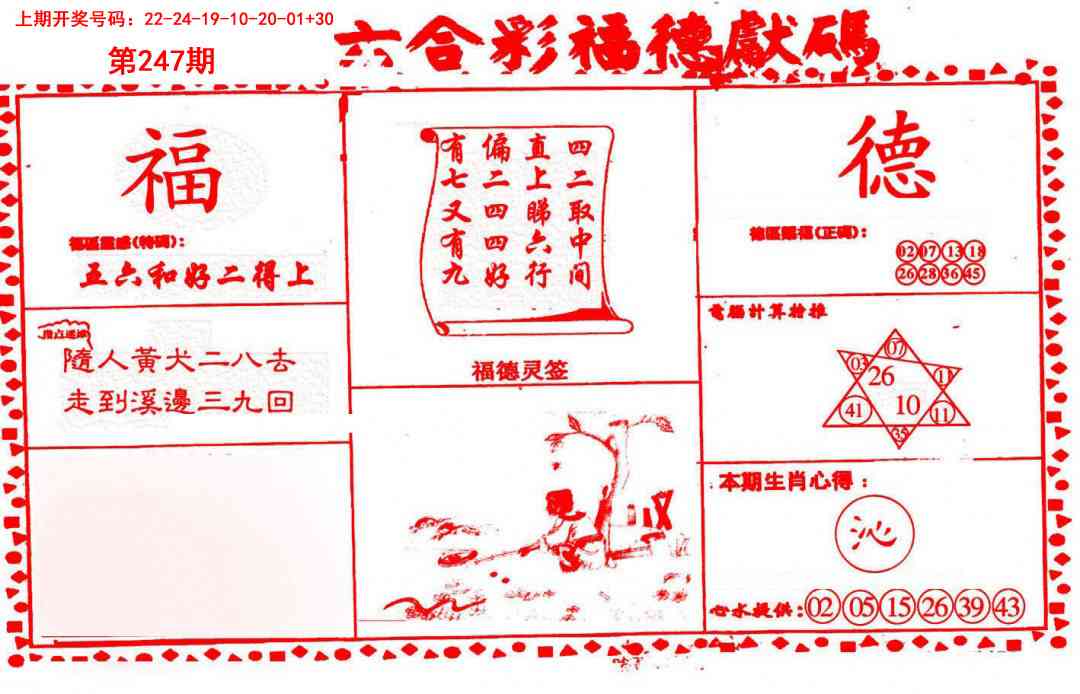 上期开奖号码：22-24-19-10-20-01+30
第247期
六合彩福德獻碼
福
(特碼)：
五六和好二得上
隨人黃犬二八去
走到溪邊三九回
四二取中间
直上睇六行
偏二四四好
有七又有九
福德灵签
德
(正碼)：
02 07 13 18
26 28 36 45
電腦計算推
07
03
26
41
10
11
35
本期生肖心得：
沁
心水提供：02 05 15 26 39 43